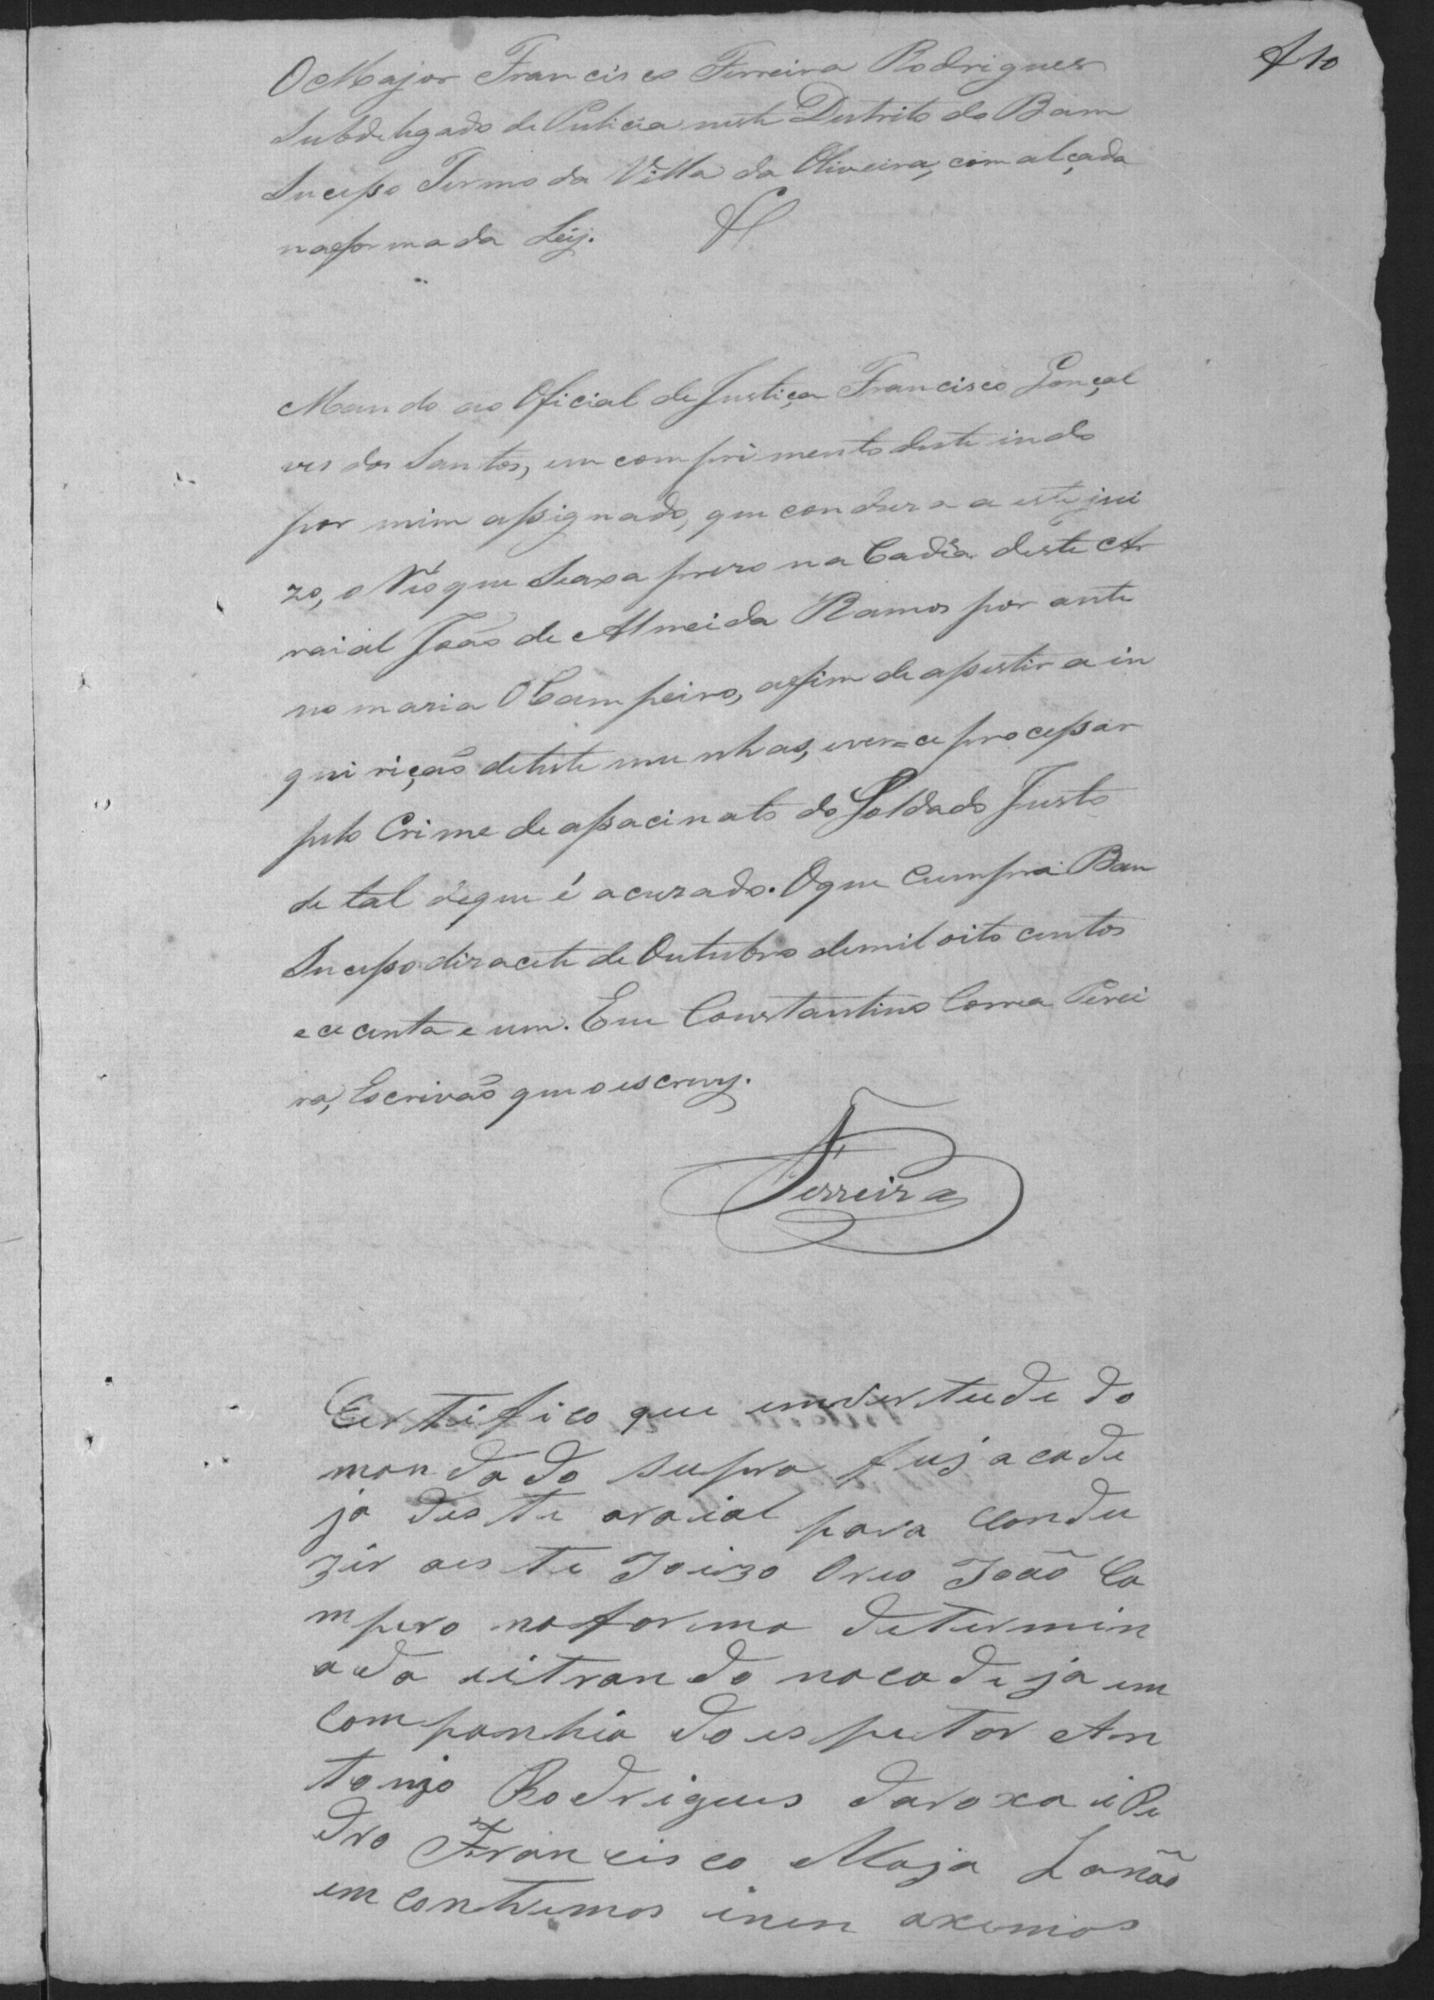 f 10
O Major Francisco Ferreira Rodrigues
Subdelegado de Pulicia neste Destrito do Bom
Sucesso Termo da Villa da Oliveira, com alçada
na forma da Ley.
Mando ao Oficial de Justiça Francisco Gonçal
ves dos Santos, em comprimento deste indo
por mim assignado, que conduza a este jui
zo, o Réo que Seaxa prezo na Cadêa deste Ar
raial João de Almeida Ramos por ante
nomazia O Campeiro, affim de assestir a in
quirição detéstemunhas, ever=ce processar
pelo Crime de assacinato do Soldado Justo
de tal deque é acuzado. Oque Cumpra Bom
Sucesso dizacete de Outubro de mil oito centos
ececenta e um. Eu Constantino Correa Perei
ra, Escrivão que o escrevy.
Ferreira
Certifico que emvertude do
mandado supra fuj acade
ja deste araial para Condu
zir aeste Joizo Oreo João Ca
mpero naforma determin
ada eitrando nacadeja em
Companhia do espetor An
tonjo Rodrigues daroxa iPe
dro Francisco Maja Lanão
emcontremos inen axemos